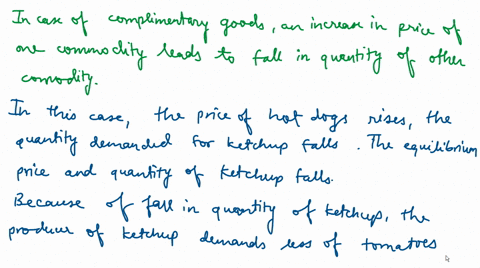 In case of complimentary goods, an increase in price of
one commodity leads to fall in quantity of other
comodity.
In this case, the price of hot dogs rises, the
quantity demanded for ketchup falls. The equilibrium
price and quantity of ketchup falls.
Because of fall in quantity of ketchup, the
producer of ketchup demands less of tomatoes